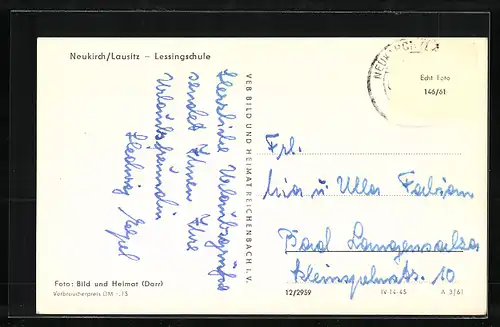 Neukirch/Lausitz – Lessingschule
Herzliche Urlaubsgrüße
sendet Ihnen Ihre
Urlaubsfreundin
Hedwig
VEB BILD UND HEIMAT REICHENBACH I. V.
Echt Foto
146/61
Frl.
u. Ulla Fabian
Bad Langensalza
10
Foto: Bild und Heimat (Darr)
Verbraucherpreis DM -.15
12/2959
IV-14-45
A 3/61